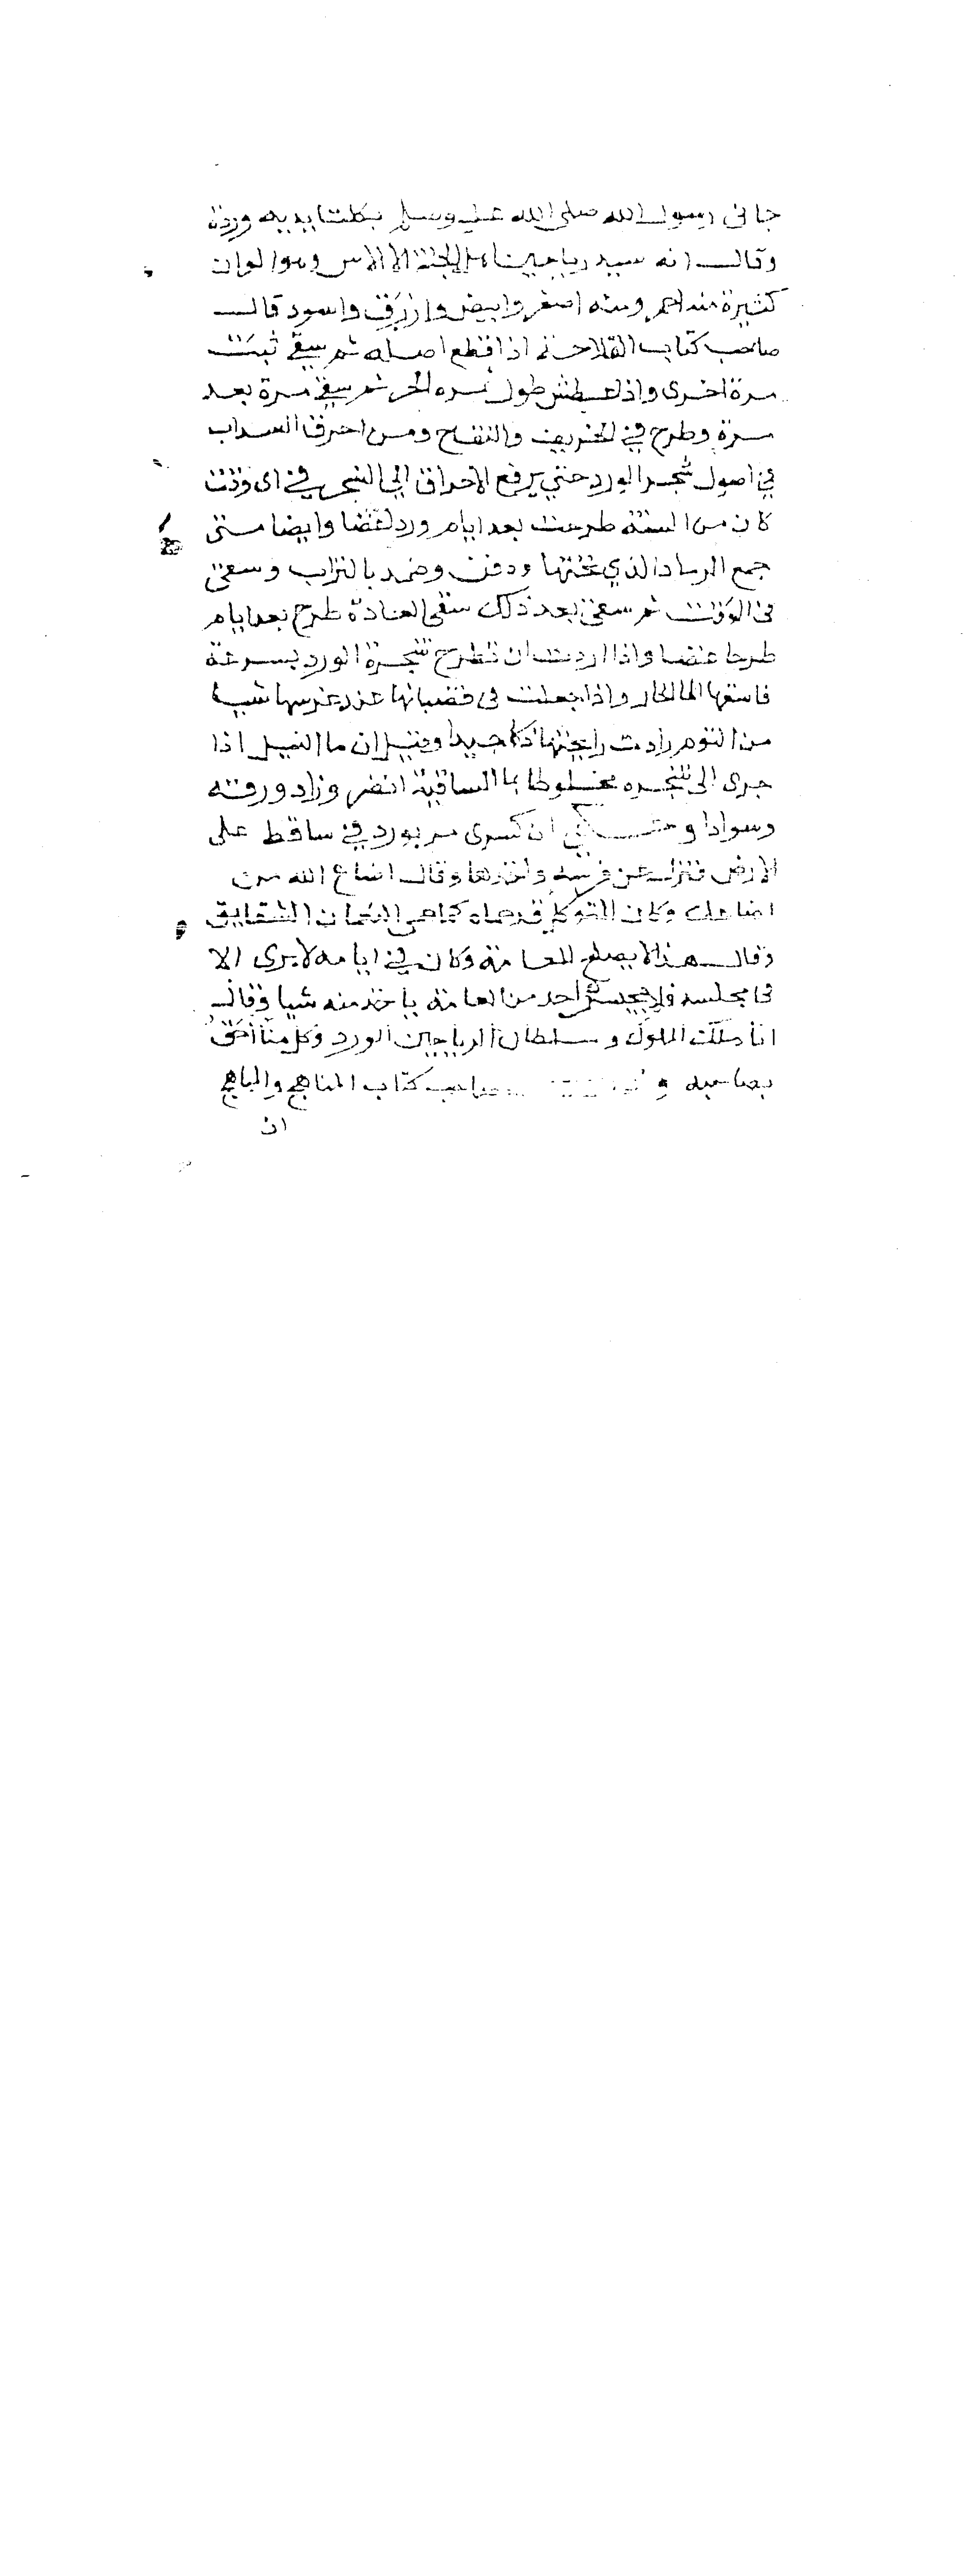 جانى رسول الله صلى الله عليه وسلم بكلتا يديه وردة
وقال انه سيد رياحين اهل الجنة الا الاس وهو الوان
كثيرة منه احمر ومنه اصفر وابيض وازرق واسود قال
صاحب كتاب الفلاحة اذا قطع اصله ثم سقي ثبتت
مرة اخرى واذا عطش طول الحر ثم سقي مرة بعد
مرة وطرح في الخريف والتفاح ومن احرق السداب
في اصول شجر الورد حتى يرفع الاحراق الى الشجر في اى وقت
كان من السنة طرحت بعد ايام وردا غضا وايضا متى
جمع الرماد الذي تحتها ودفن وضمد بالتراب وسقى
فى الوقت ثم سقى بعد ذلك سقى العادة طرح بعد ايام
طرحا غضا واذا اردت ان تطرح شجرة الورد بسرعة
فاسقها الما الحار واذا جعلت فى قضبانها عند غرسها شيا
من الثوم زادت رايحتها ذكا جيدا وقيل ان ما النيل اذا
جرى الى شجره مخلوطا بما الساقية انضر وزاد ورقته
وسوادا وحكي ان كسرى مر بورد في ساقط على
الارض فنزل عن فرسه واخذها وقال اضاع الله من
اضاعك وكان المتوكل قد حماه كما حمى النعمان الشقايق
وقال هذا لا يصلح للعامة وكان في ايامه لا يرى الا
فى مجلسه فلا يجسر احد من العامة ياخذ منه شيا وقال
انا ملك الملوك وسلطان الرياحين الورد وكل منا احق
بصاحبه صاحب كتاب المناهج والمباهج
ان